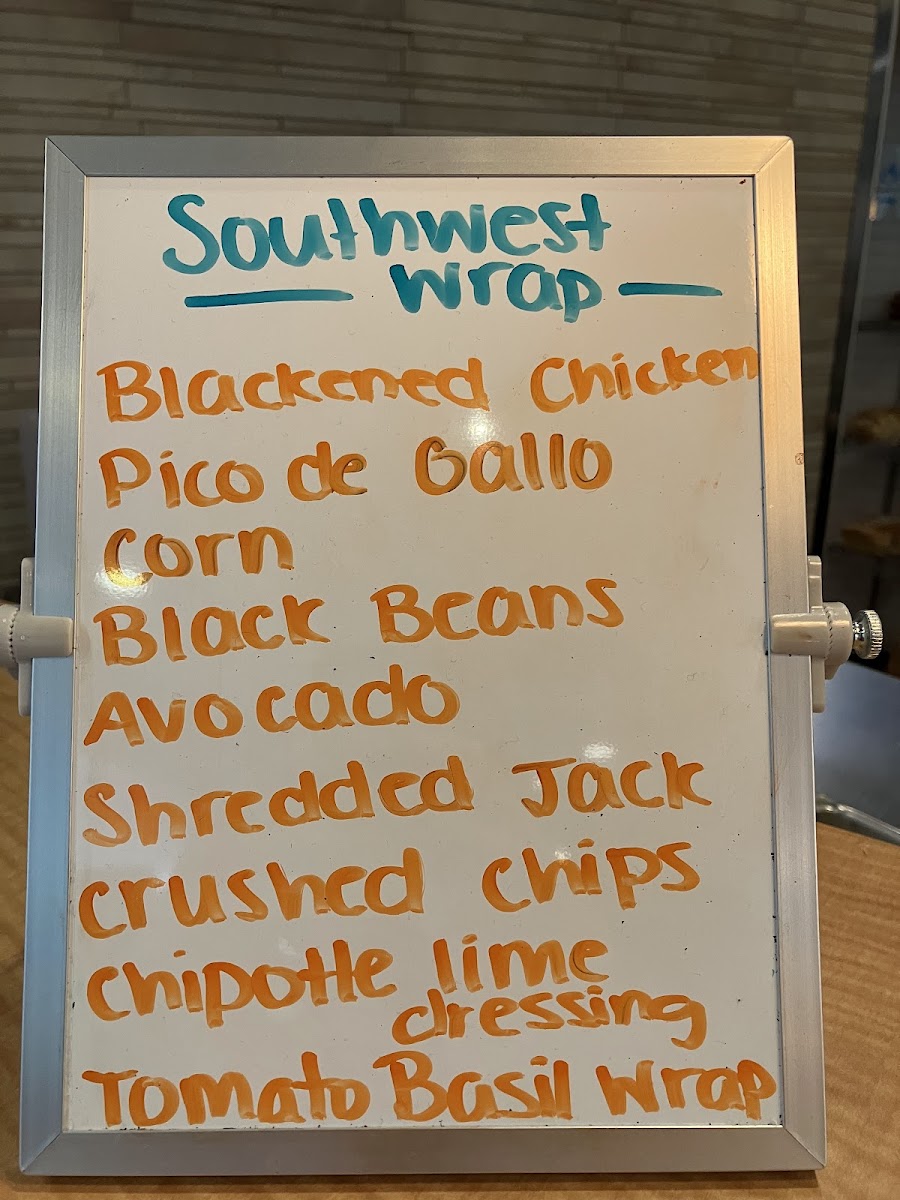 Southwest
wrap
Blackened Chicken
Pico de Gallo
Corn
Black Beans
Avocado
Shredded Jack
crushed chips
chipotle lime
dressing
Tomato Basil wrap